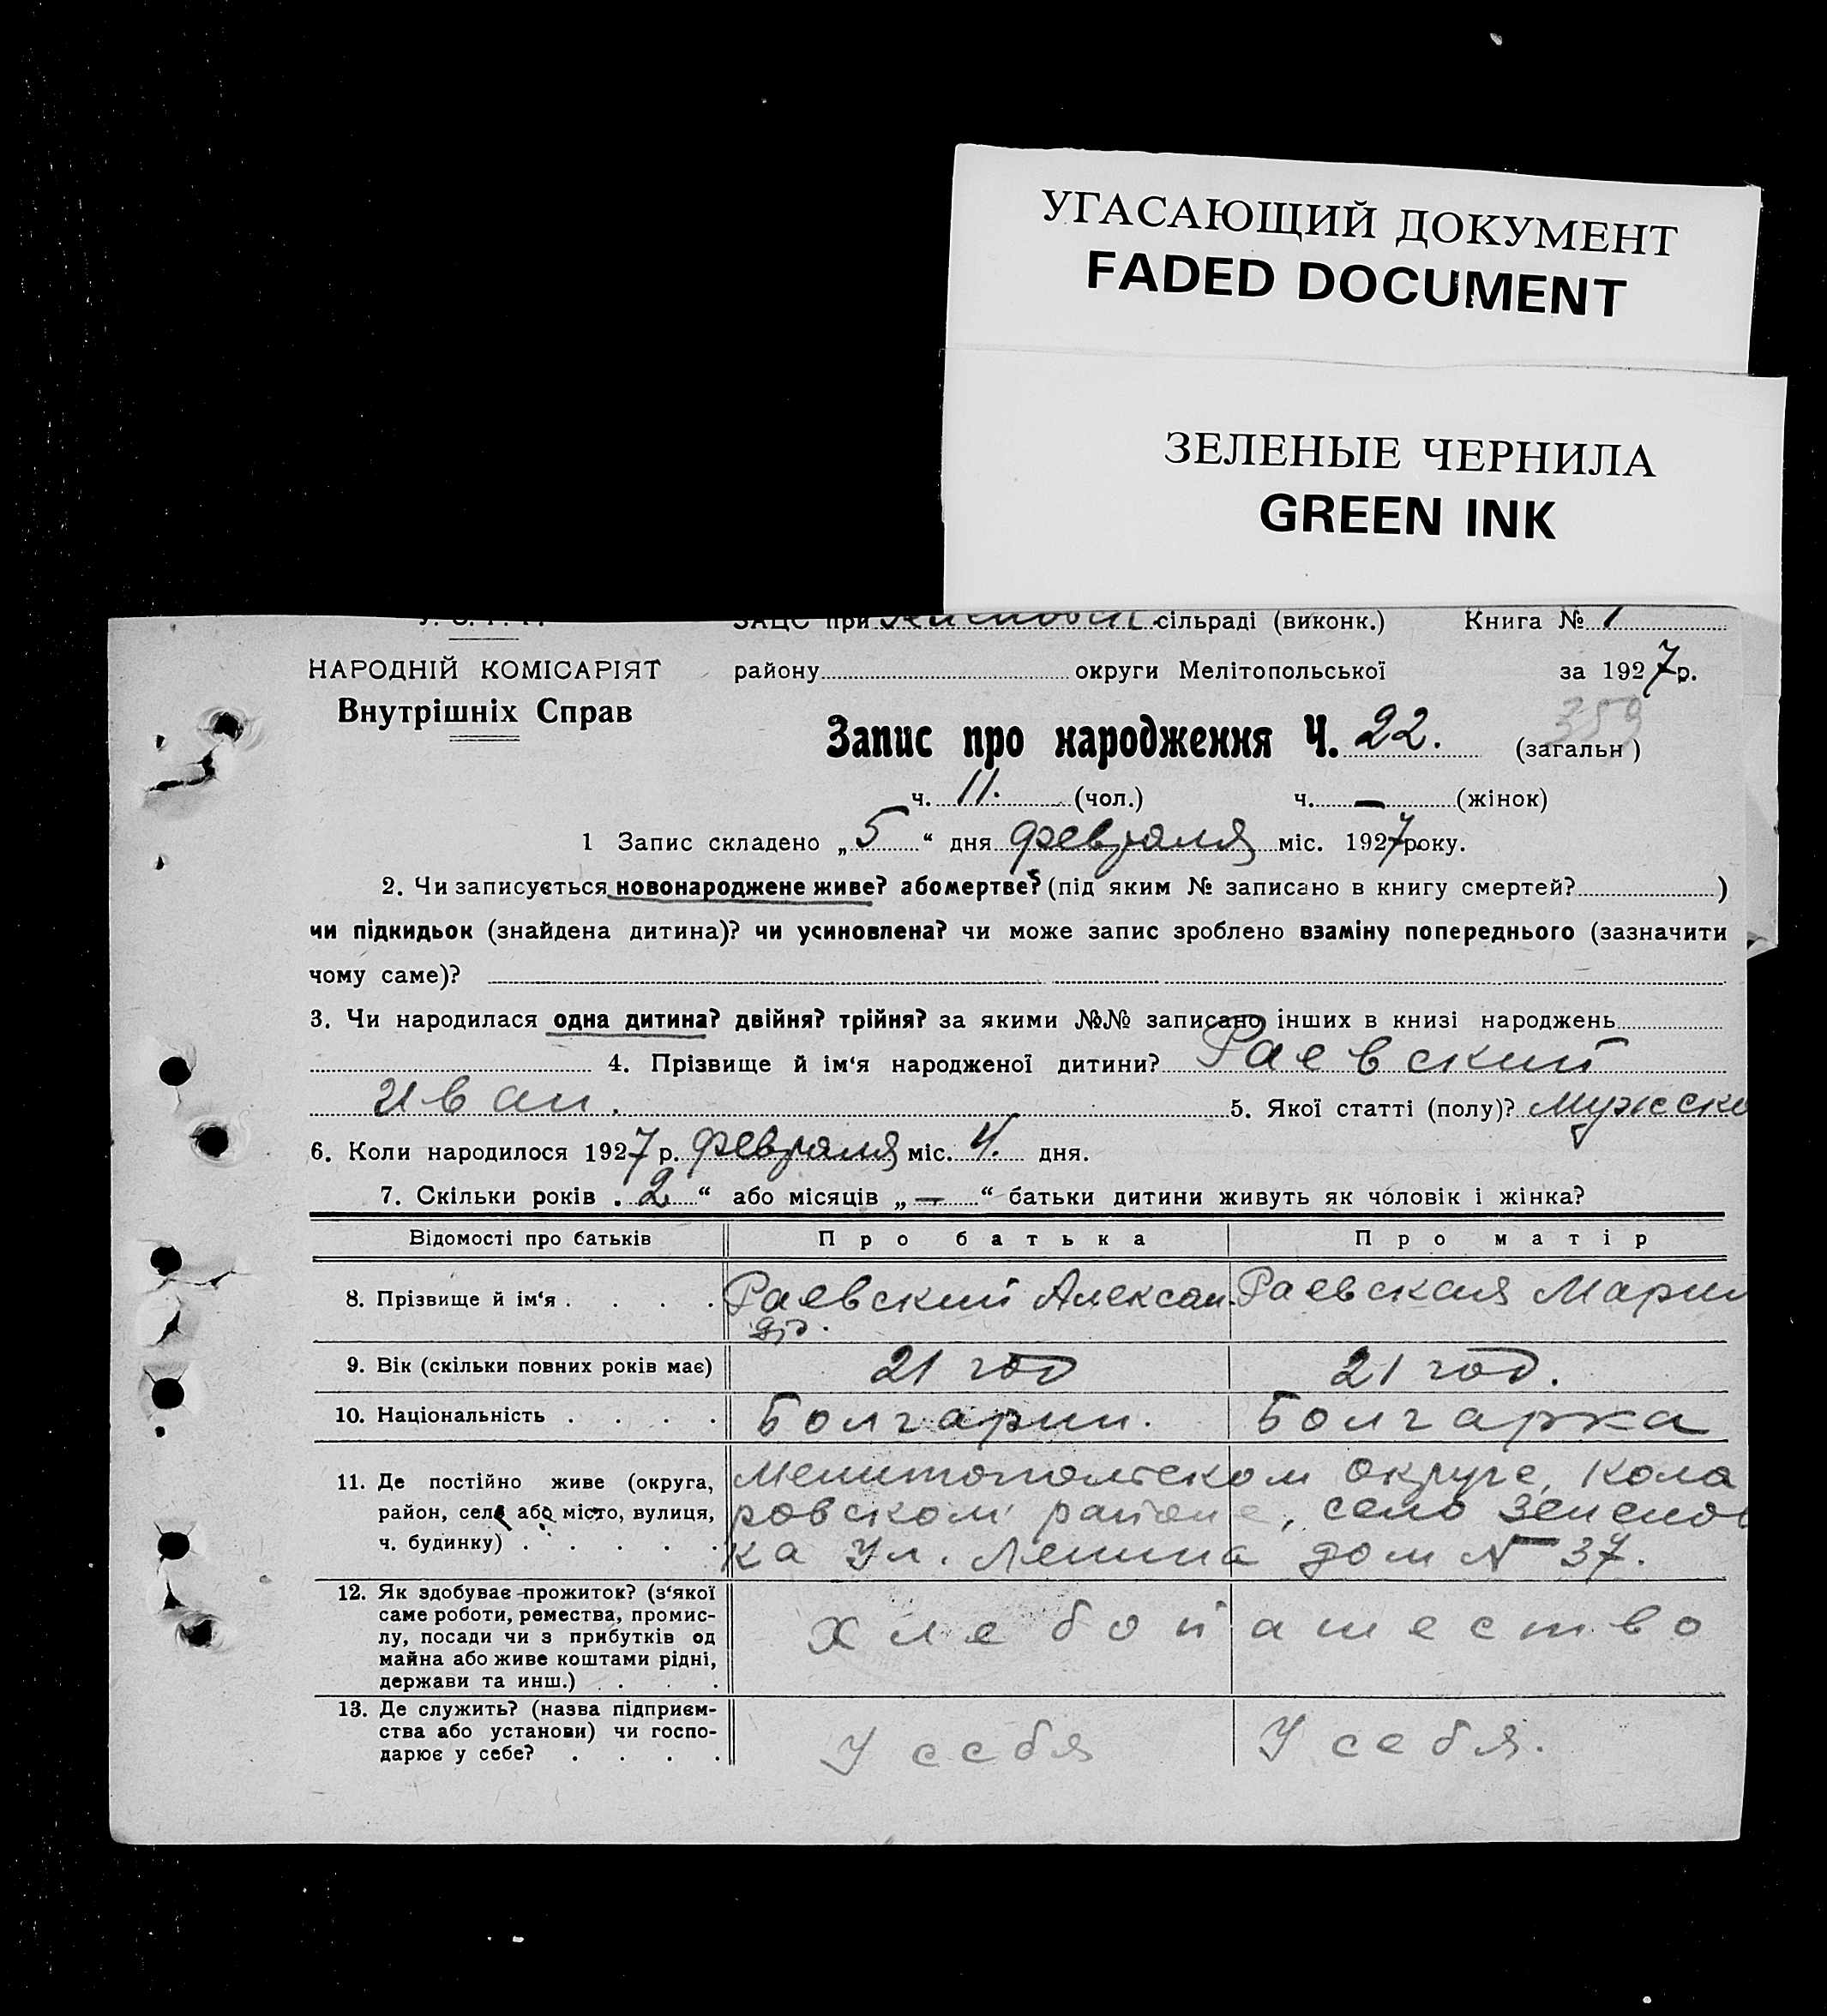 УГАСАЮЩИЙ ДОКУМЕНТ
FADED DOCUMENT
ЗЕЛЕНЫЕ ЧЕРНИЛА
GREEN INK
ЗАЦС при сільраді (виконк.) Книга № 1
НАРОДНІЙ КОМІСАРІЯТ району округи Мелітопольської за 1927 р.
Внутрішніх Справ
359
Запис про народження Ч. 22. (загальн)
ч. 11. (чол.) ч. — (жінок)
1 Запис складено „5“ дня февраля міс. 1927 року.
2. Чи записується новонароджене живе? або мертве? (під яким № записано в книгу смертей? )
чи підкидьок (знайдена дитина)? чи усиновлена? чи може запис зроблено взаміну попереднього (зазначити
чому саме)?
3. Чи народилася одна дитина? двійня? трійня? за якими №№ записано інших в книзі народжень
4. Прізвище й ім‘я народженої дитини? Раевский
Иван. 5. Якої статті (полу)? мужско
6. Коли народилося 1927 р. февраля міс. 4. дня.
7. Скільки років . 2 “ або місяців „ — “ батьки дитини живуть як чоловік і жінка?
Відомості про батьків Про батька Про матір
8. Прізвище й ім‘я . . . . Раевский Алексан- Раевская Мария
др.
9. Вік (скільки повних років має) 21 год 21 год.
10. Національність . . . . Болгарин. Болгарка
11. Де постійно живе (округа, Мелитопольском округе, Кола
район, село або місто, вулиця, ровском районе, село Зеленов
ч. будинку) . . . . . ка Ул. Ленина дом № 37.
12. Як здобуває прожиток? (з‘якої
саме роботи, ремества, промис-
лу, посади чи з прибутків од хлебопашество
майна або живе коштами рідні,
держави та инш.) . . . .
13. Де служить? (назва підприєм-
ства або установи) чи госпо- У себя У себя.
дарює у себе? . . . .